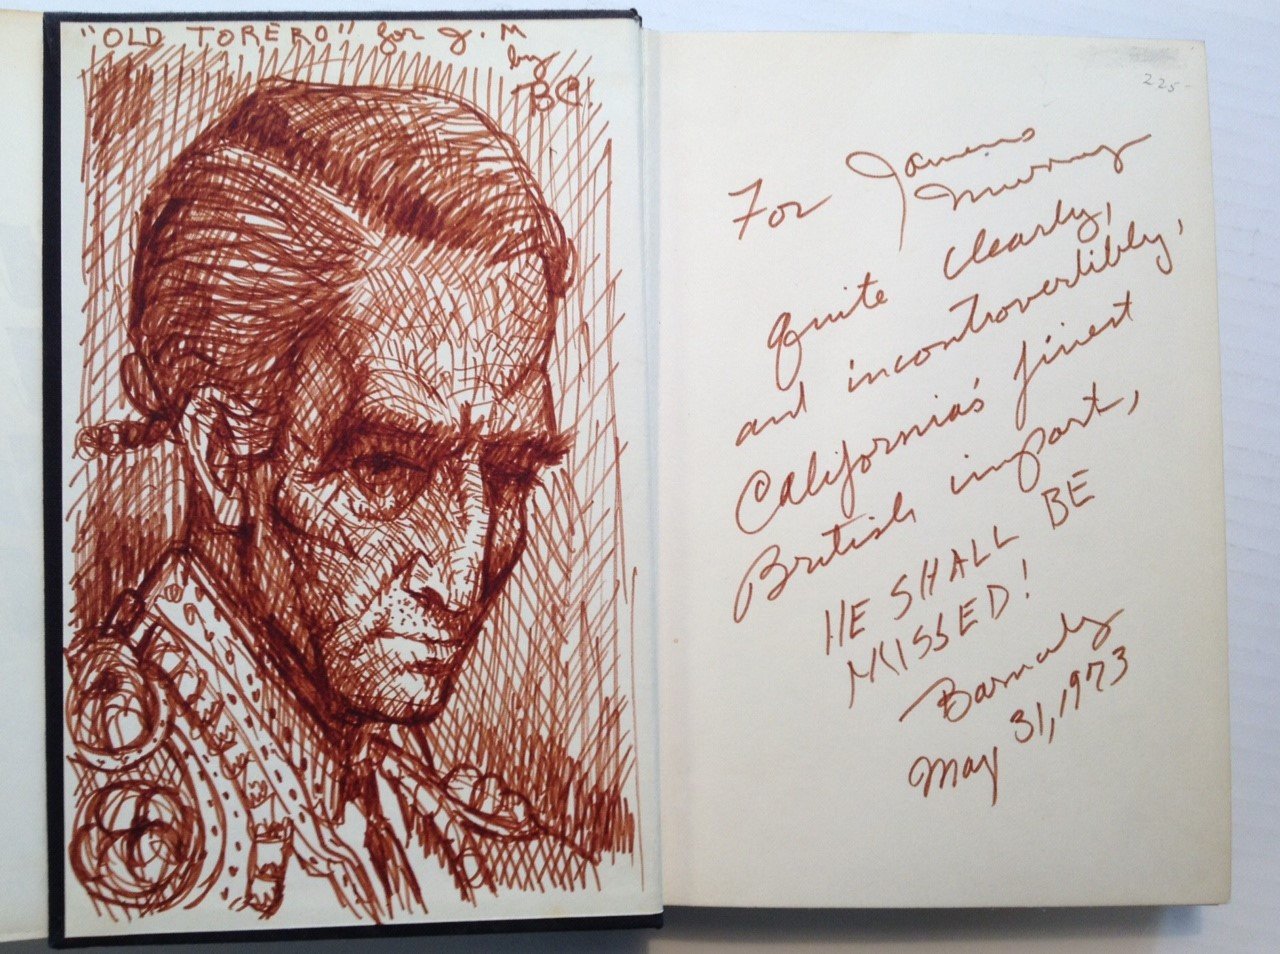 "OLD TORERO" for J. M
by
BC.
225-
For James
Murray
quite clearly,
and incontrovertibly,
California's finest
British import,
HE SHALL BE
MISSED!
Barnaby
May 31, 1973